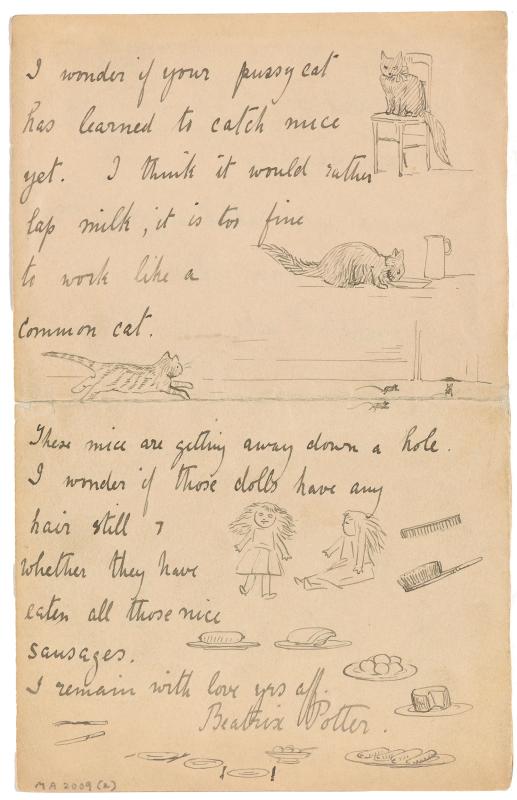 I wonder if your pussy cat
has learned to catch mice
yet. I think it would rather
lap milk, it is too fine
to work like a
common cat.
These mice are getting away down a hole.
I wonder if those dolls have any
hair still &
whether they have
eaten all those nice
sausages.
I remain with love yrs aff.
Beatrix Potter.
MA 2009 (2)